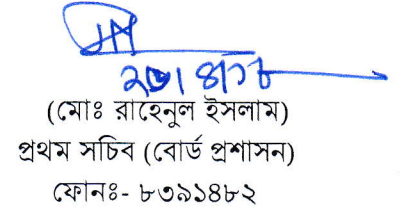 (মোঃ রাহেনুল ইসলাম)
প্রথম সচিব (বোর্ড প্রশাসন)
ফোনঃ- ৮৩৯১৪৮২